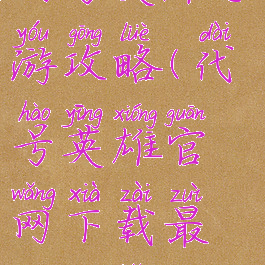 yóu gōng lüè dài
游攻略(代
hào yīng xióng guān
号英雄官
wǎng xià zài zuì
网下载最